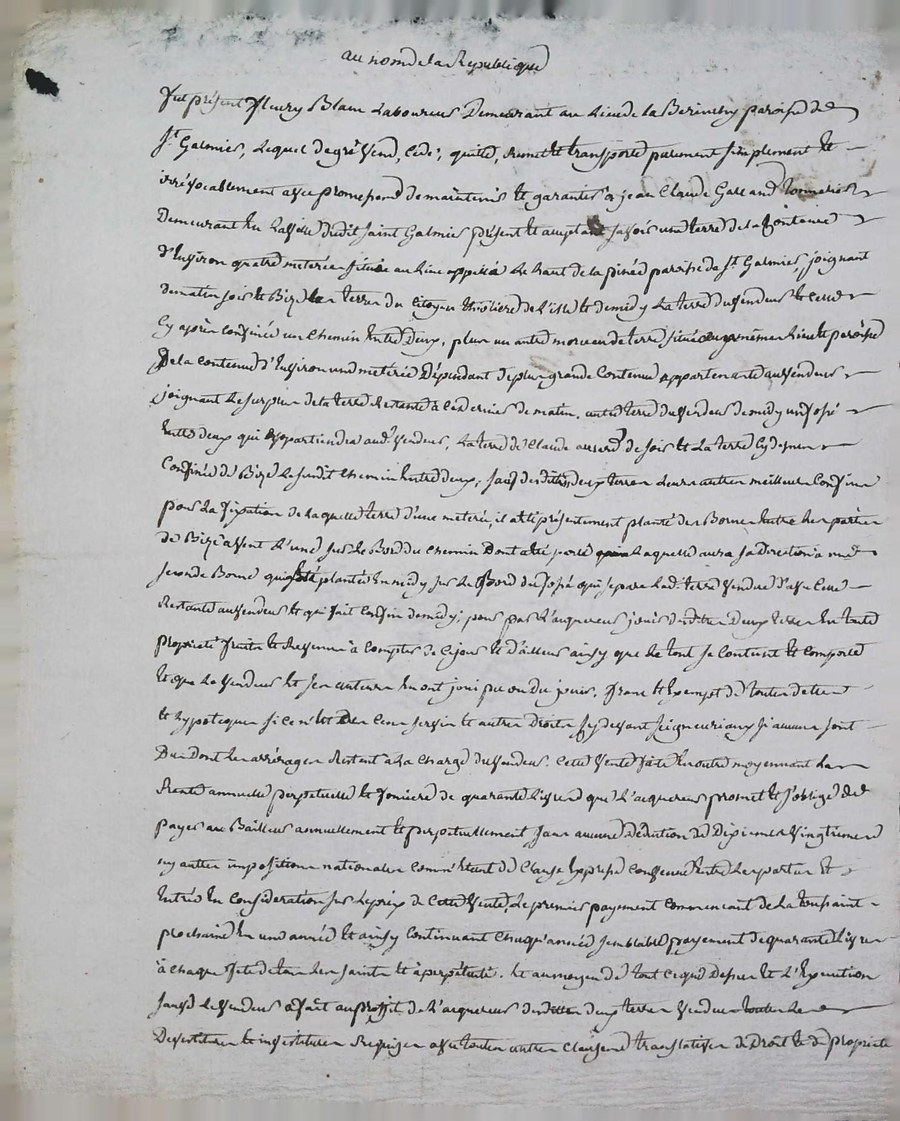 au nom de la Republique
fut présent fleury Blanc Laboureur Demeurant au Lieu de la paroisse de
St Galmier, Lequel de gré vend, cede, quitte, remet et transporte purement simplement et
irrévocablement avec promesse de maintenir et garantir à jean Claude Galland Tonnelier
Demeurant en La ville dudit Saint Galmier présent et acceptant savoir une terre de la Contenue
d'Environ quatre meterée située au Lieu appellé Le haut de la paroisse de St Galmier, joignant
de matin soir et Bize Les terres du Citoyen de L'isle de midy La terre du vendeur et celle
Cy après confinée un Chemin Entre Deux, plus un autre morceau de terre située au même Lieu et paroisse
De la Contenue d'Environ une meterée Dépendant de plus grande Contenue appartenante au vendeur
joignant Le surplus de la terre Restante à ce dernier de matin, autre terre du vendeur de midy un fossé
Entre deux qui appartiendra aud. vendeur, La terre de Claude de soir et La terre Cy dessus
Confinée de Bize Le susdit Chemin Entre deux, sauf desdittes deux terres Leurs autres meilleurs Confins
pour La fixation de Laquelle terre d'une meterée, il a été présentement planté des Bornes Entre Les parties
de Bize à vent L'une sur Le Bord du Chemin Dont a été parlé Laquelle aura sa Direction à une
seconde Borne qui a été plantée En midy sur Le Bord du fossé qui separe Lad. terre vendue d'avec celle
Restante au vendeur et qui fait Confin de midy; pour par L'acquereur jouir desdittes Deux terres En toute
propriété fruits et Revenus à Compter de Ce jour et d'ailleurs ainsy que Le tout se Contient et Comporte
et que Le vendeur et ses auteurs En ont joui pu ou du jouir, franc et Exempt de toutes dettes
et hypoteques si ce n'est Des Cens servis et autres Droits Cy devant seigneuriaux si aucuns sont
Dus Dont Les arrérages Restent à La Charge du vendeur. Cette vente faite En outre moyennant La
Rente annuelle perpetuelle et fonciere de quarante Livres que L'acquereur promet et s'oblige de
payer au Bailleur annuellement et perpetuellement sans aucune Déduction de Dixiemes vingtiemes
ny autres impositions nationales comm'étant de Clause Expresse Convenue Entre Les parties et
Entrée En Considération sur Le prix de Cette vente, Le premier payement Commencant de La toussaint
prochaine En une année et ainsy Continuant Chaqu'année semblable payement de quarante Livres
à Chaque fete de tous Les Saints et à perpetuité. Et au moyen de tout Ce que Dessus et L'Execution
sauve Le vendeur a fait au profit de L'acquereur desdittes deux terres vendues toutes Les
Devestitures et investitures Requises avec toutes autres Clauses translatives de Droit et de propriete